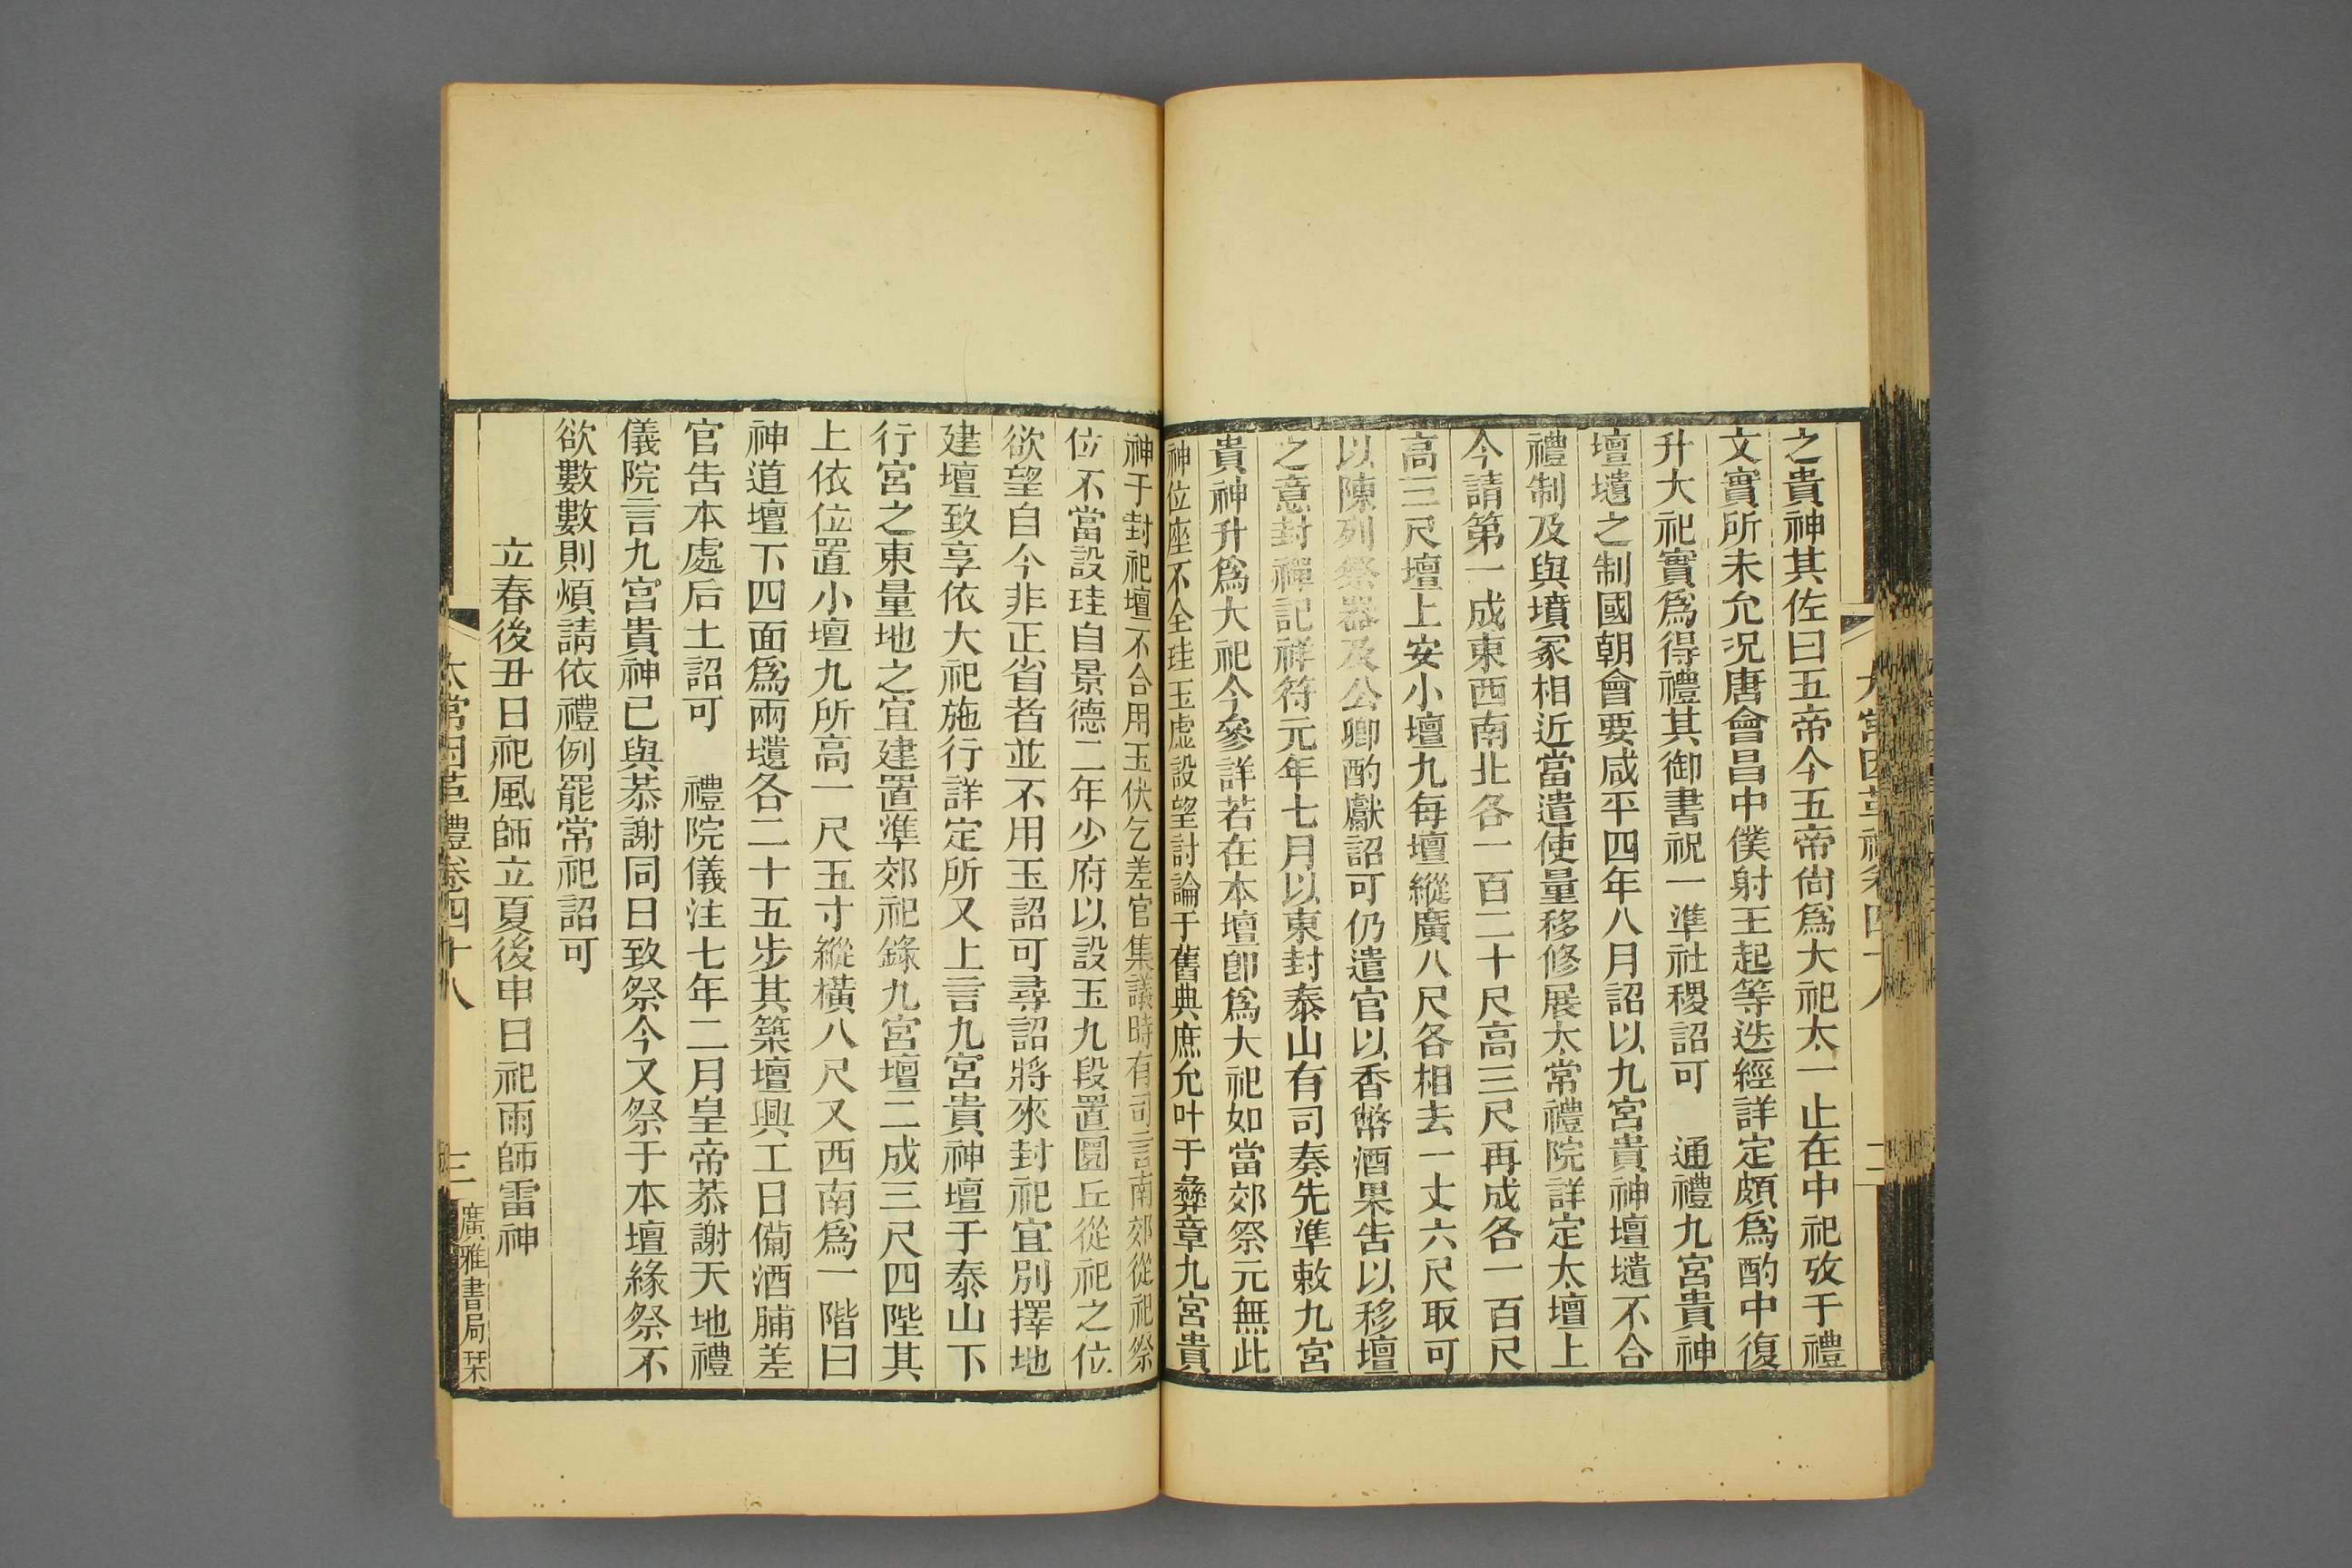 之貴神其佐曰五帝今五帝尙爲大祀太一止在中祀攷于禮
文實所未允況唐會昌中僕射王起等迭經詳定頗爲酌中復
升大祀實爲得禮其御書祝一準社稷詔可　通禮九宮貴神
壇壝之制國朝會要咸平四年八月詔以九宮貴神壇壝不合
禮制及與墳冢相近當遣使量移修展太常禮院詳定太壇上
今請第一成東西南北各一百二十尺高三尺再成各一百尺
高三尺壇上安小壇九每壇縱廣八尺各相去一丈六尺取可
以陳列祭器及公卿酌獻詔可仍遣官以香幣酒果告以移壇
之意封禪記祥符元年七月以東封泰山有司奏先準敕九宮
貴神升爲大祀今參詳若在本壇卽爲大祀如當郊祭元無此
神位座不全珪玉虛設望討論于舊典庶允叶于彝章九宮貴
神于封祀壇不合用玉伏乞差官集議時有司言南郊從祀祭
位不當設珪自景德二年少府以設玉九段置圜丘從祀之位
欲望自今非正省者並不用玉詔可尋詔將來封祀宜別擇地
建壇致享依大祀施行詳定所又上言九宮貴神壇于泰山下
行宮之東量地之宜建置準郊祀錄九宮壇二成三尺四陛其
上依位置小壇九所高一尺五寸縱橫八尺又西南爲一階曰
神道壇下四面爲兩壝各二十五步其築壇興工日備酒脯差
官告本處后土詔可　禮院儀注七年二月皇帝恭謝天地禮
儀院言九宮貴神已與恭謝同日致祭今又祭于本壇緣祭不
欲數數則煩請依禮例罷常祀詔可
立春後丑日祀風師立夏後申日祀雨師雷神
太常因革禮卷四十八
三
廣雅書局栞